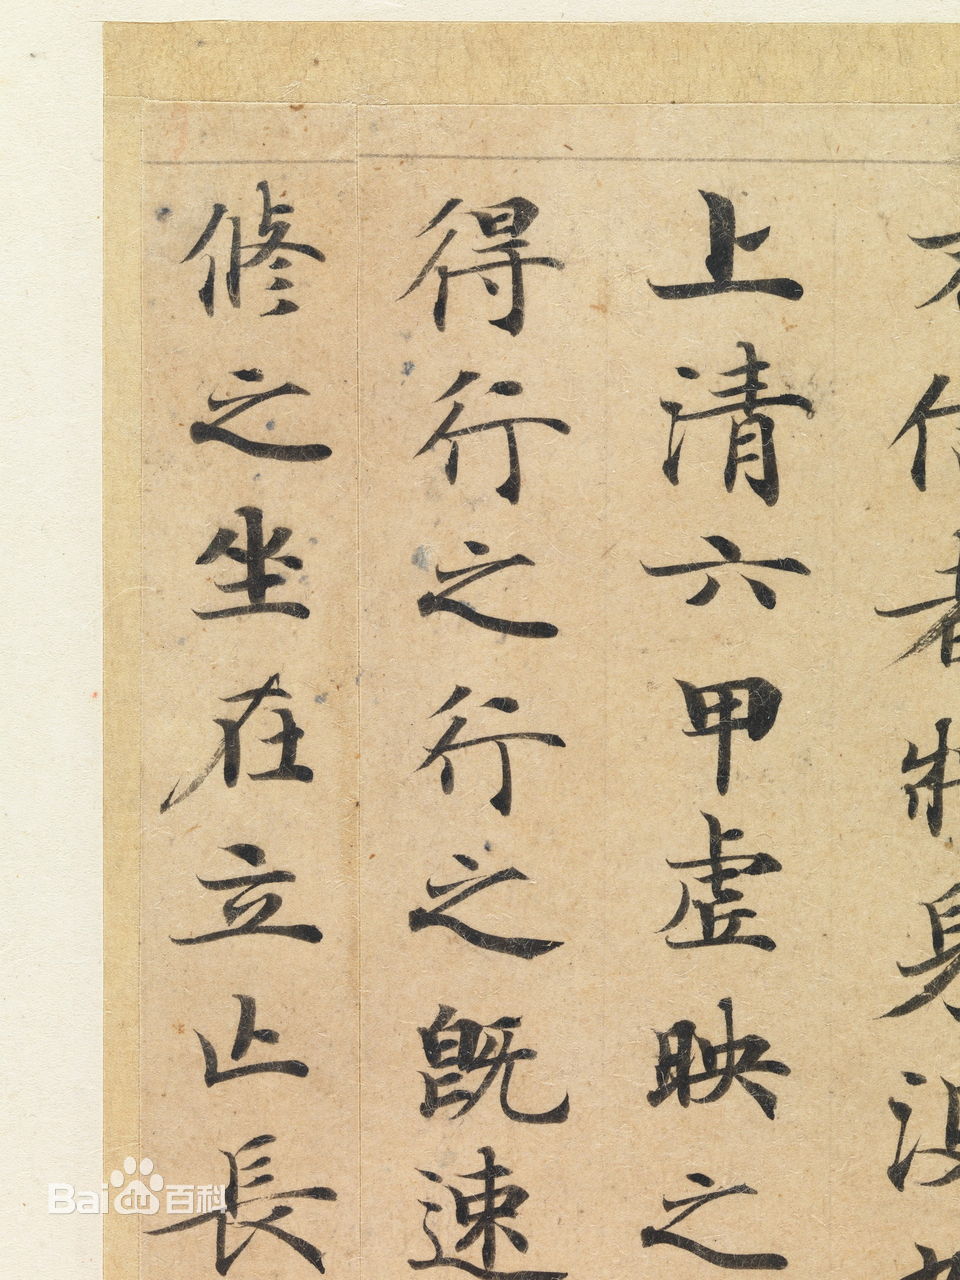 不信者將身沒
上清六甲虛映之
得行之行之既速
修之坐在立止長
Baidu百科